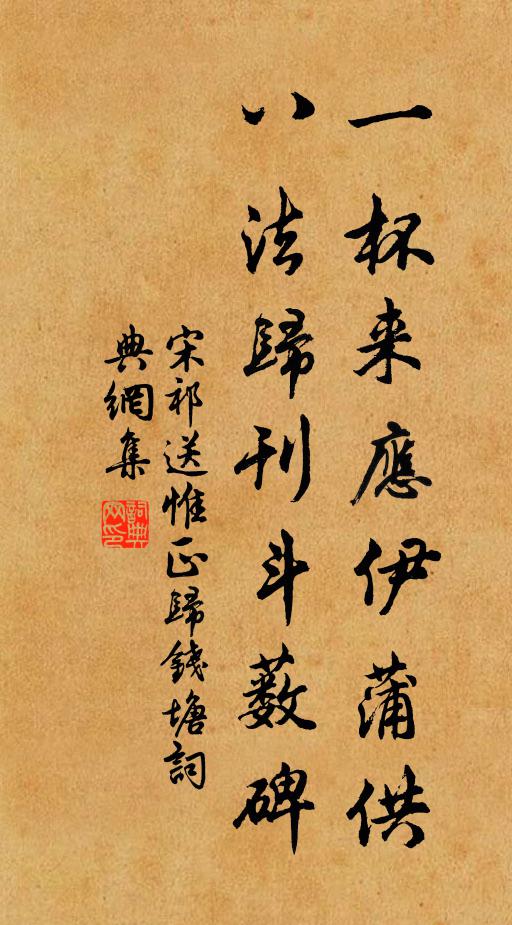 一杯来應伊蒲供
八法歸刊斗藪碑
宋祁送惟正歸錢塘詞
典網集
詞典网印